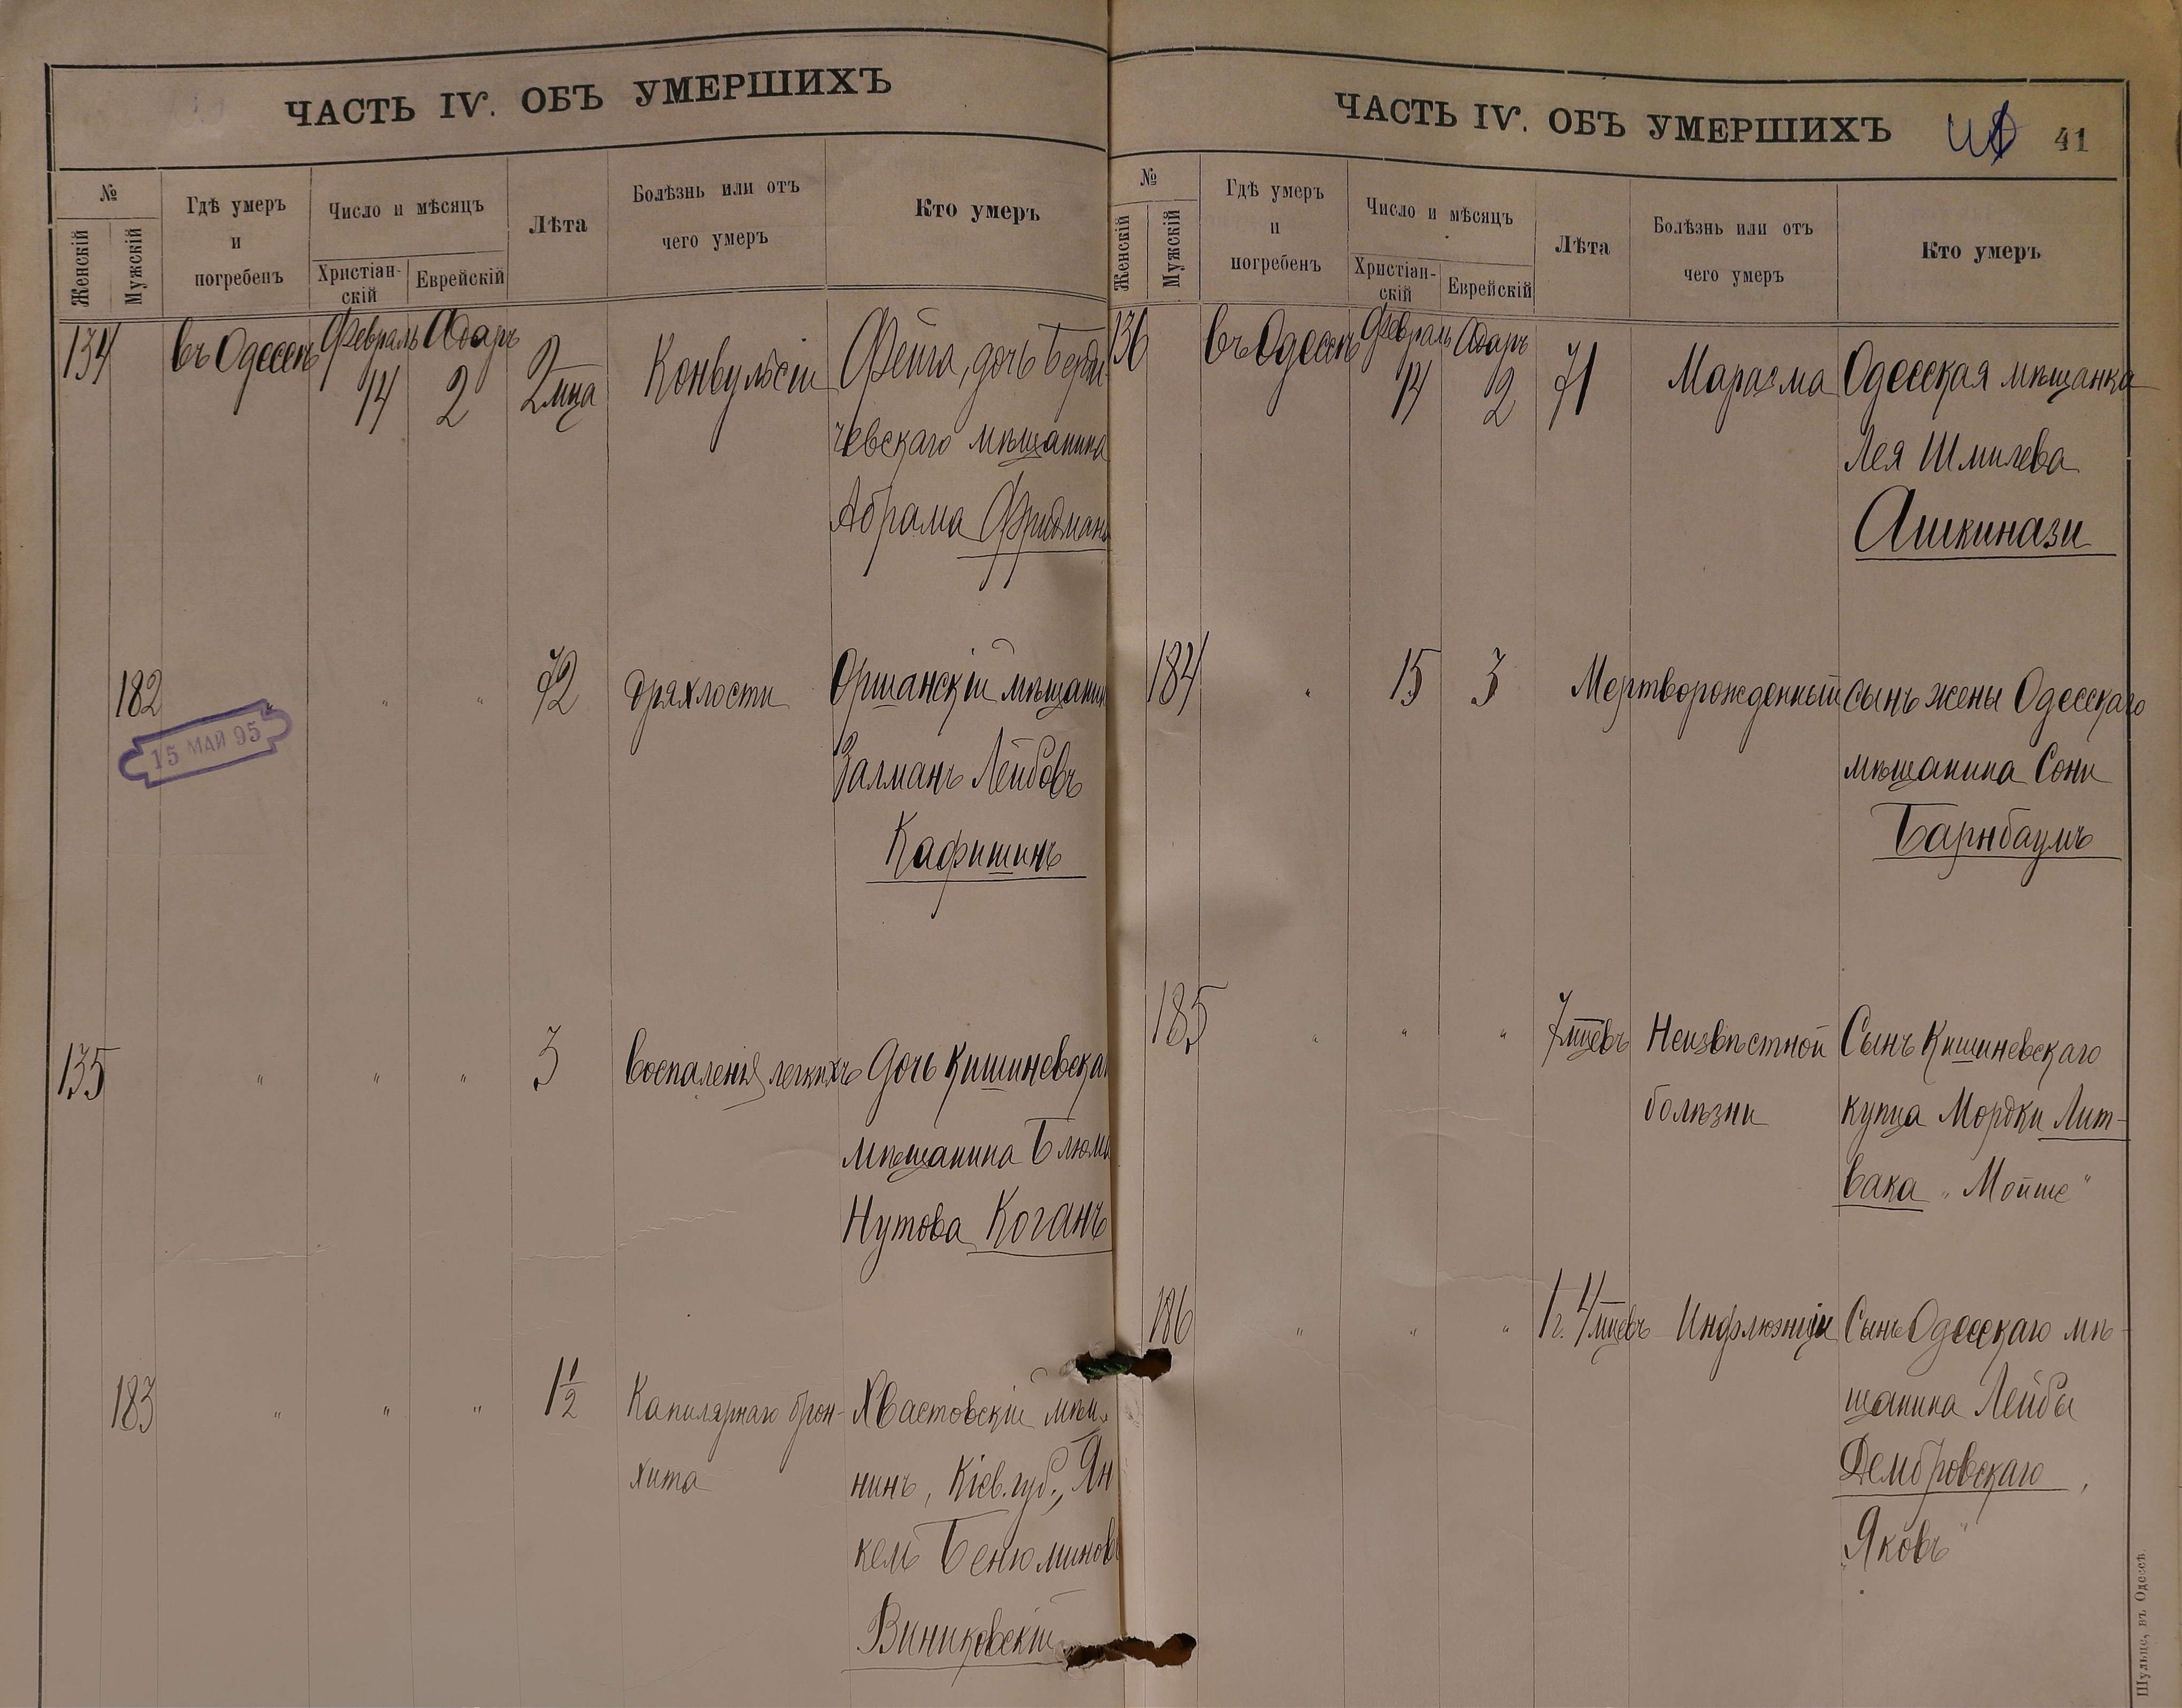 ЧАСТЬ IV. ОБЪ УМЕРШИХЪ
№
Женскій
Мужскій
Гдѣ умеръ
и
погребенъ
Число и мѣсяцъ
Христіан-
скій
Еврейскій
Лѣта
Болѣзнь или отъ
чего умеръ
Кто умеръ
134
въ Одессѣ
Февраль
14
Адаръ
2
2 мца
Конвульсіи
Фейга, дочь Берди-
чевскаго мѣщанина
Абрама Фридмана
182
"
"
72
дряхлости
Оршанскій мѣщанин
Залманъ Лейбовъ
Кафишинъ
15 МАЙ 95
135
"
"
"
3
воспаленія легкихъ
Дочь Кишиневскаго
мѣщанина Блюма
Нутова Коганъ
183
"
"
"
1 1/2
Капилярнаго брон-
хита
Хвастовскій мѣщ.
нинъ, Кіев. губ., Ян
кель Бенюминовъ
Виниковскій
ЧАСТЬ IV. ОБЪ УМЕРШИХЪ
41
№
Женскій
Мужскій
Гдѣ умеръ
и
погребенъ
Число и мѣсяцъ
Христіан-
скій
Еврейскій
Лѣта
Болѣзнь или отъ
чего умеръ
Кто умеръ
136
въ Одессѣ
Февраль
14
Адаръ
2
71
Маразма
Одесская мѣщанка
Лея Шмилева
Ашкинази
184
"
15
3
Мертворожденный
сынъ жены Одесскаго
мѣщанина Сони
Барнбаумъ
185
"
"
"
7 мцевъ
Неизвѣстной
болѣзни
Сынъ Кишиневскаго
купца Мордки Лит-
вака „Мойше"
186
"
"
"
1 г. 4 мцевъ
Инфлюэнціи
Сынъ Одесскаго мѣ-
щанина Лейбы
Дембровскаго,
„Яковъ"
Шульце, въ Одессѣ.